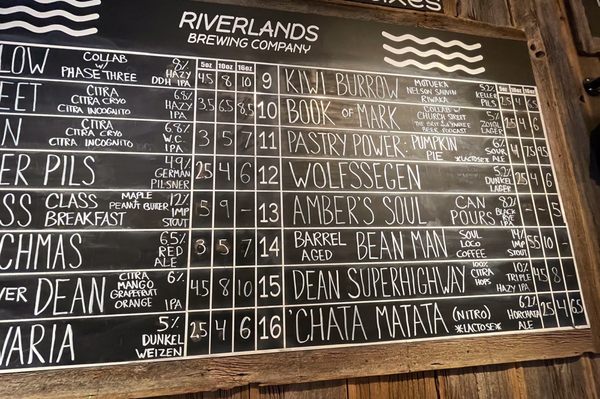 RIVERLANDS
BREWING COMPANY
5oz 10oz 16oz
5oz 10oz 16oz
LOW COLLAB W/ PHASE THREE 8% HAZY DDH IPA 4.5 8 10
CITRA CITRA CRYO CITRA INCOGNITO 6.8% HAZY IPA 3.5 6.5 8.5
CITRA CITRA CRYO CITRA INCOGNITO 6.8% W.C. IPA 3 5 7
ER PILS 4.9% GERMAN PILSNER 2.5 4 6
CLASS BREAKFAST MAPLE PEANUT BUTTER 12% IMP STOUT 5 9 -
CHMAS 6.5% RED ALE 3 5 7
DEAN CITRA MANGO GRAPEFRUIT ORANGE 6% IPA 4.5 8 10
VARIA 5% DUNKEL WEIZEN 2.5 4 6
9 KIWI BURROW MOTUEKA NELSON SAUVIN RIWAKA 5.2% KELLER PILS 2.5 4 6.5
10 BOOK OF MARK COLLAB W/ CHURCH STREET THE DRY & BITTER BEER PODCAST 5% ZOIGL LAGER 2.5 4 6
11 PASTRY POWER: PUMPKIN PIE *LACTOSE* 6% SOUR ALE 4 7.5 9.5
12 WOLFSSEGEN 5.2% DUNKEL LAGER 2.5 4 6
13 AMBER'S SOUL CAN POURS 8.2% BLACK RYE IPA - - 5
14 BARREL AGED BEAN MAN SOUL LOCO COFFEE 14% IMP STOUT 5.5 10 -
15 DEAN SUPERHIGHWAY 100% CITRA HOPS 10% TRIPLE HAZY IPA 4.5 8
16 'CHATA MATATA (NITRO) *LACTOSE* 6.2% HORCHATA ALE 2.5 4 6.5